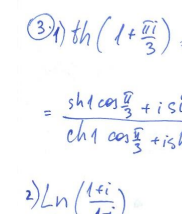 ③ 1) th (1 + πi/3)
= sh1 cos π/3 + i si
ch1 cos π/3 + ish
2) Ln (1+i/1-i)